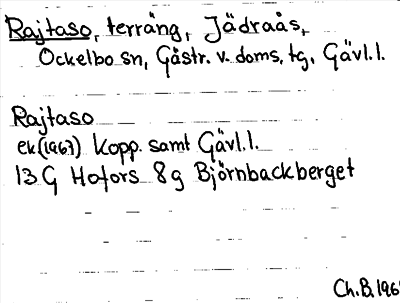 Rajtaso, terräng, Jädraås,
Ockelbo sn, Gästr. v. doms. tg. Gävl. l.
Rajtaso
ek (1967) Kopp. samt Gävl. l.
13 G Hofors 8 g Björnbackberget
Ch. B. 196